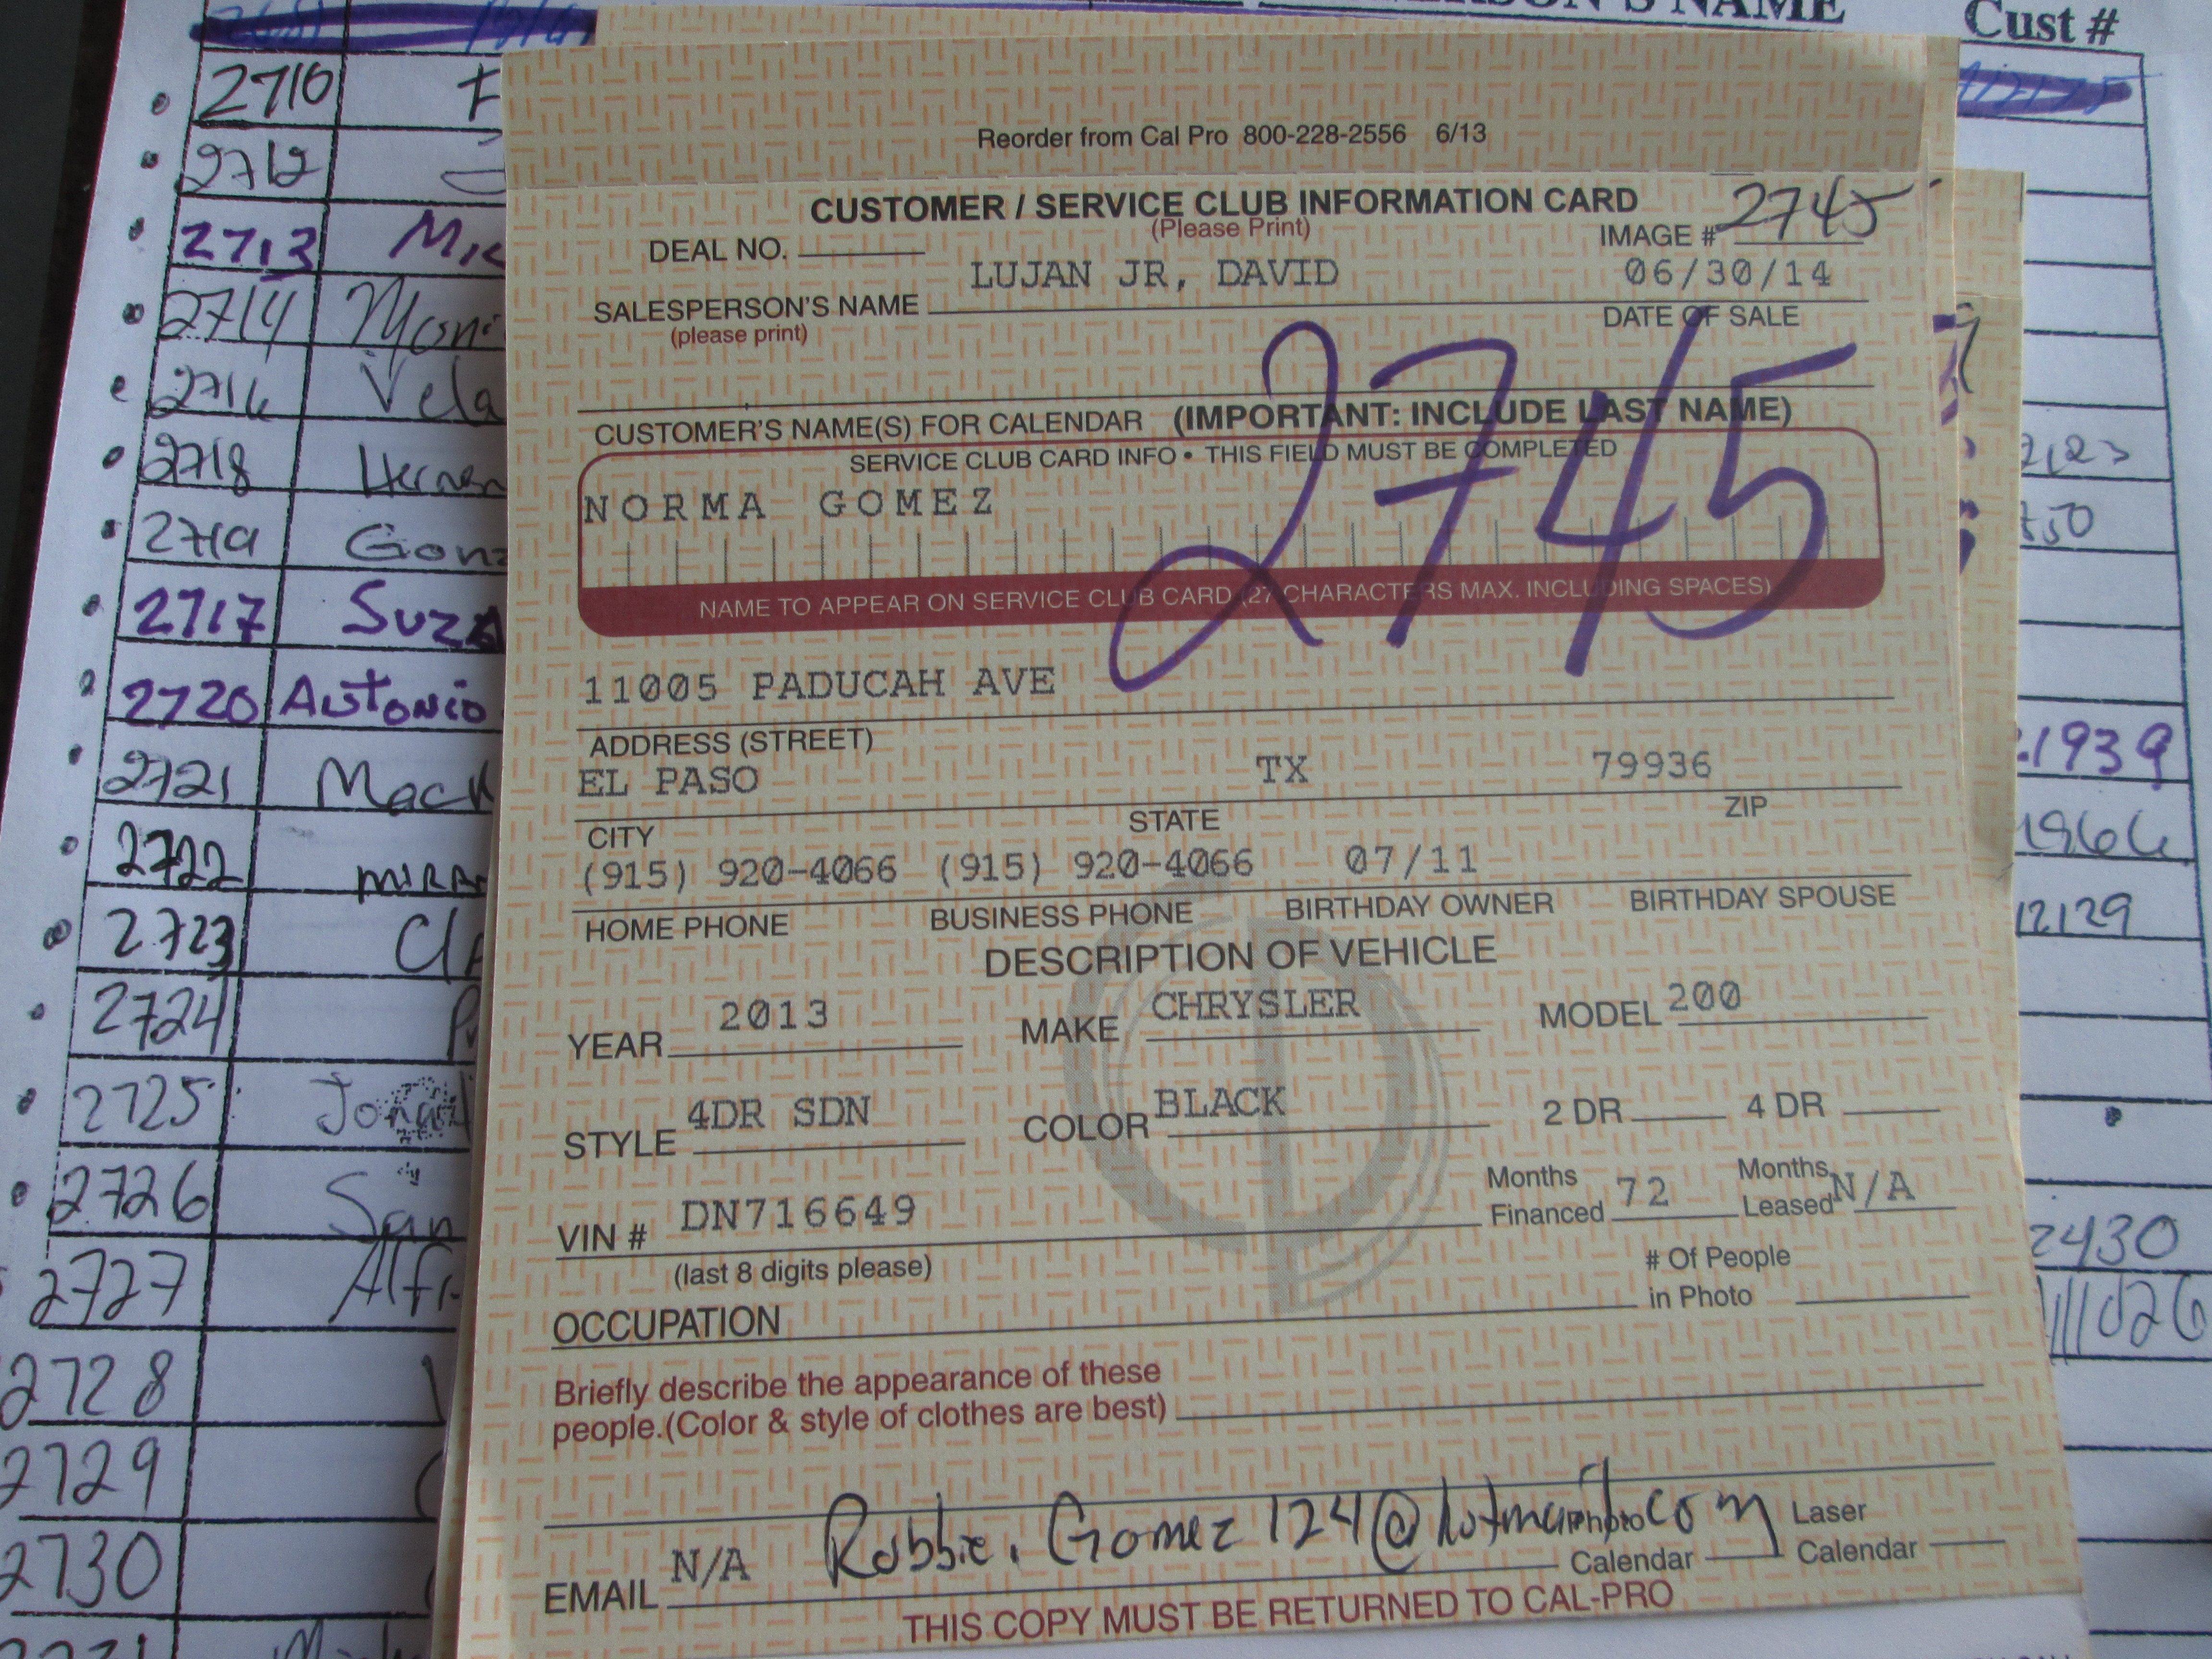 PERSON'S NAME
Cust #
2710
2712
2713
2714
2716 Vela
2718
2719
2717
2720 Antonio
2721
2722
2723
2724
2725
2726
2727
2728
2729
2730
Reorder from Cal Pro 800-228-2556 6/13
CUSTOMER / SERVICE CLUB INFORMATION CARD
(Please Print)
DEAL NO.
IMAGE # 2745
LUJAN JR, DAVID 06/30/14
SALESPERSON'S NAME DATE OF SALE
(please print)
2745
CUSTOMER'S NAME(S) FOR CALENDAR (IMPORTANT: INCLUDE LAST NAME)
SERVICE CLUB CARD INFO • THIS FIELD MUST BE COMPLETED
NORMA GOMEZ
NAME TO APPEAR ON SERVICE CLUB CARD (27 CHARACTERS MAX. INCLUDING SPACES)
11005 PADUCAH AVE
ADDRESS (STREET)
EL PASO TX 79936
CITY STATE ZIP
(915) 920-4066 (915) 920-4066 07/11
HOME PHONE BUSINESS PHONE BIRTHDAY OWNER BIRTHDAY SPOUSE
DESCRIPTION OF VEHICLE
YEAR 2013 MAKE CHRYSLER MODEL 200
STYLE 4DR SDN COLOR BLACK 2 DR 4 DR
VIN # DN716649 Months Financed 72 Months Leased N/A
(last 8 digits please)
# Of People
in Photo
OCCUPATION
Briefly describe the appearance of these
people.(Color & style of clothes are best)
EMAIL N/A Robbie.Gomez124@hotmail.com
Photo Calendar
Laser Calendar
THIS COPY MUST BE RETURNED TO CAL-PRO